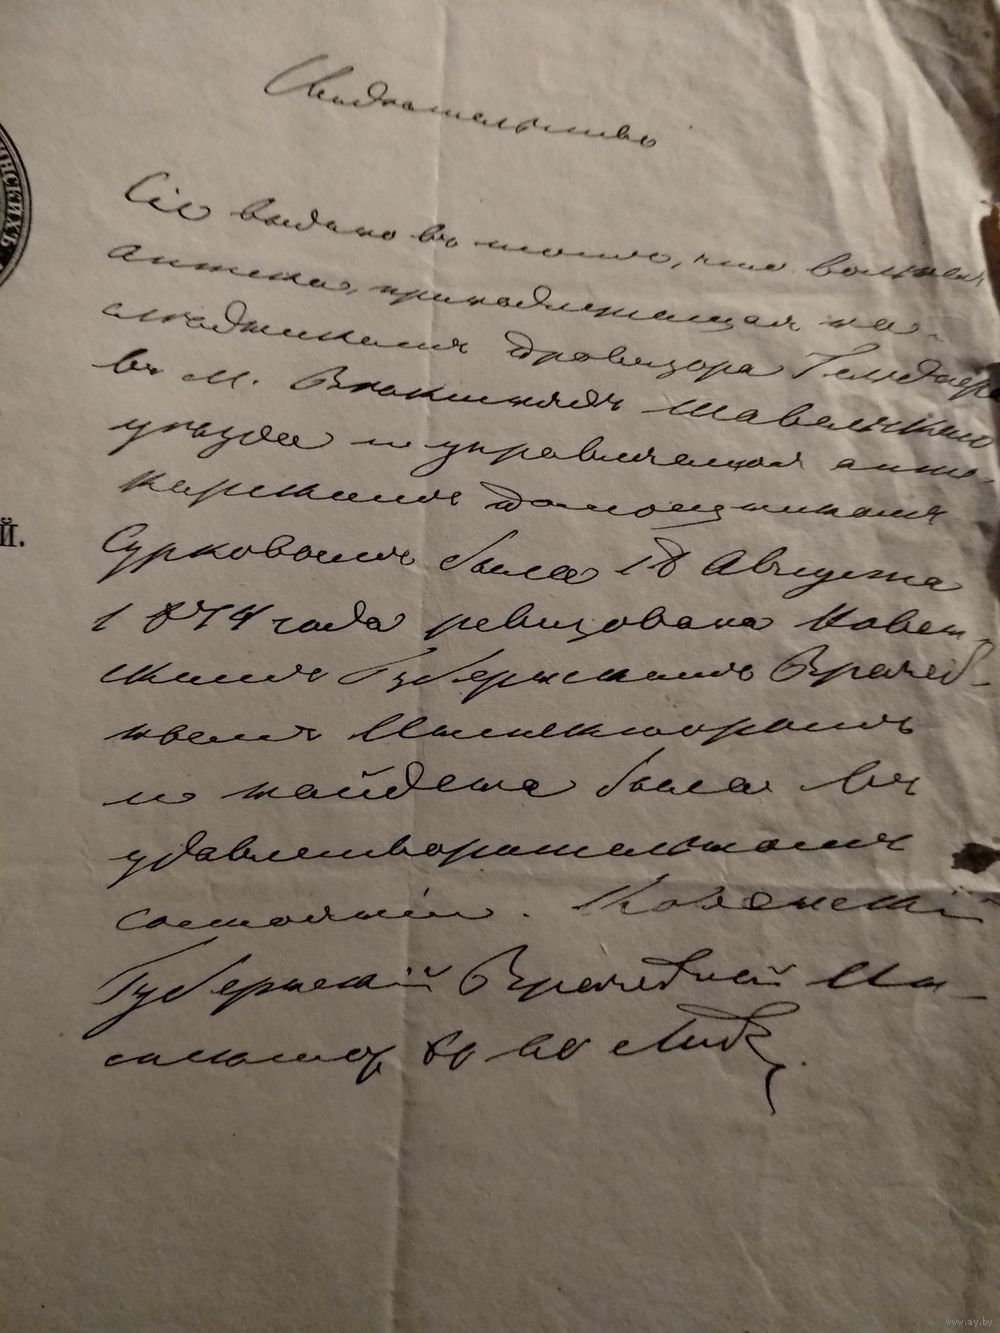 Свидѣтельство
Сіе выдано въ томъ, что вольная
аптека, принадлежащая на-
слѣдникамъ провизора
въ м. Шавельскаго
уѣзда и управляемая апте-
карскимъ помощникомъ
Сурковымъ была 18 Августа
1874 года ревизована Ковен-
скимъ Губернскимъ Врачеб-
нымъ Инспекторомъ
и найдена была въ
удовлетворительномъ
состояніи. Ковенскій
Губернскій Врачебный Ин-
спекторъ
НСКИХЪ
Й.
www.ay.by